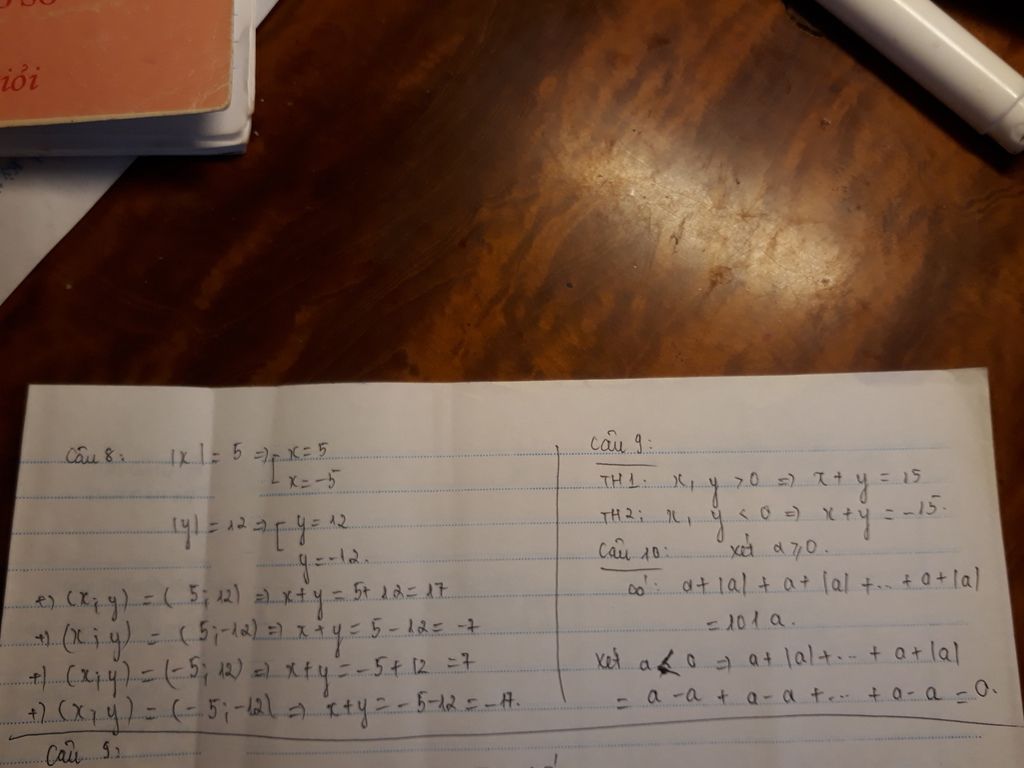 iỏi
Câu 8: |x| = 5 => [ x = 5
x = -5
|y| = 12 => [ y = 12
y = -12.
+) (x; y) = ( 5; 12) => x + y = 5 + 12 = 17
+) (x; y) = ( 5; -12) => x + y = 5 - 12 = -7
+) (x; y) = (-5; 12) => x + y = -5 + 12 = 7
+) (x; y) = (-5; -12) => x + y = -5 - 12 = -17.
Câu 9:
TH1: x, y > 0 => x + y = 15
TH2: x, y < 0 => x + y = -15.
Câu 10: xét a ⩾ 0.
a + |a| + a + |a| + ... + a + |a|
= 101 a.
xét a < 0 => a + |a| + ... + a + |a|
= a - a + a - a + ... + a - a = 0.
Câu 9: